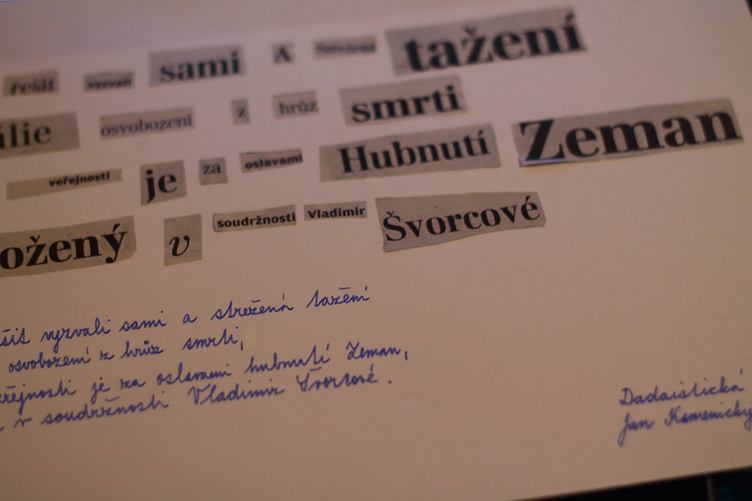 řešit vyzvali sami A Střežená tažení
álie osvobození z hrůz smrti
veřejnosti je za oslavami Hubnutí Zeman
ožený v soudržnosti Vladimír Švorcové
šit vyzvali sami a střežená tažení
osvobození z hrůz smrti,
eřejnosti je za oslavami hubnutí Zeman,
v soudržnosti Vladimir Švorcové.
Dadaistická
Jan Kamenický